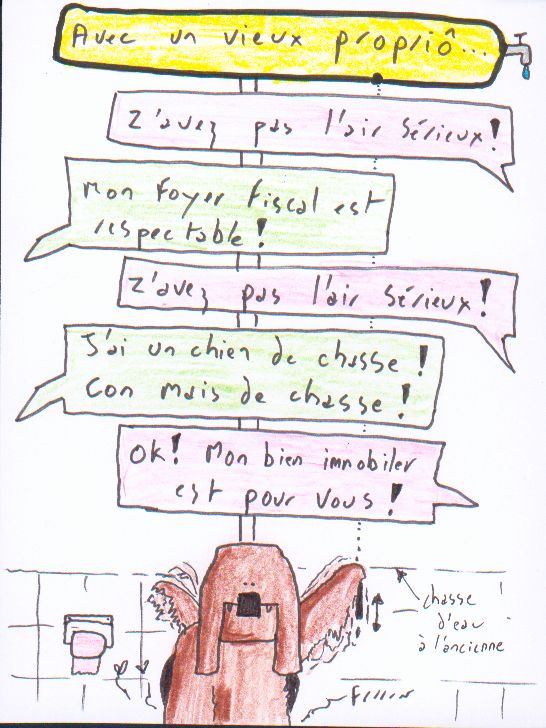 Avec un vieux propriô...
Z'avez pas l'air sérieux!
Mon foyer fiscal est
respectable!
Z'avez pas l'air sérieux!
J'ai un chien de chasse!
Con mais de chasse!
Ok! Mon bien immobiler
est pour vous!
chasse
d'eau
à l'ancienne